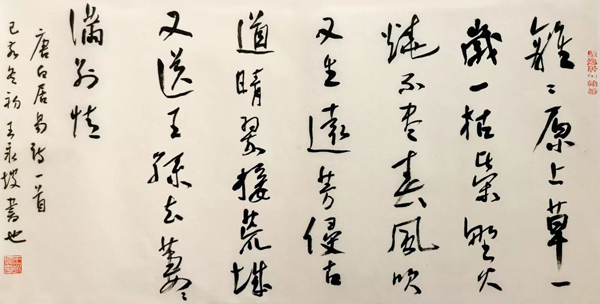 離〻原上草一
歲一枯榮野火
燒不盡春風吹
又生遠芳侵古
道晴翠接荒城
又送王孫去萋〻
滿別情
唐白居易詩一首
己亥冬初王永坡書也